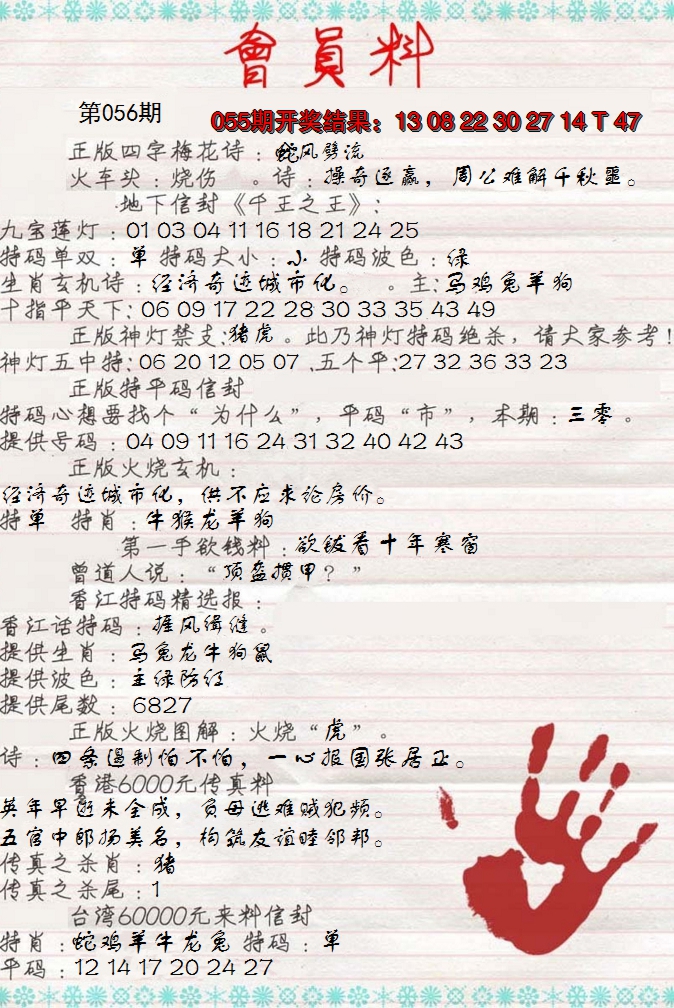 會員料
第056期
055期开奖结果：13 08 22 30 27 14 T 47
正版四字梅花诗：蛇风劈流
火车头：烧伤 。诗：操奇逐赢，周公难解千秋噩。
地下信封《千王之王》：
九宝莲灯：01 03 04 11 16 18 21 24 25
特码单双：单 特码大小：小 特码波色：绿
生肖玄机诗：经济奇迹城市化。 。主：马鸡兔羊狗
十指平天下：06 09 17 22 28 30 33 35 43 49
正版神灯禁支：猪虎。此乃神灯特码绝杀，请大家参考！
神灯五中特：06 20 12 05 07 、五个平：27 32 36 33 23
正版特平码信封
特码心想要找个“为什么”，平码“市”，本期：三零。
提供号码：04 09 11 16 24 31 32 40 42 43
正版火烧玄机：
经济奇迹城市化，供不应求论房价。
特单 特肖：牛猴龙羊狗
第一手欲钱料：欲钱看十年寒窗
曾道人说：“顶盔掼甲？”
香江特码精选报：
香江话特码：捱风缉缝。
提供生肖：马兔龙牛狗鼠
提供波色：主绿防红
提供尾数：6827
正版火烧图解：火烧“虎”。
诗：四条遏制怕不怕，一心报国张居正。
香港6000元传真料
英年早逝未全成，负母逃难贼犯频。
五官中郎扬美名，构筑友谊睦邻邦。
传真之杀肖：猪
传真之杀尾：1
台湾60000元来料信封
特肖：蛇鸡羊牛龙兔 特码：单
平码：12 14 17 20 24 27